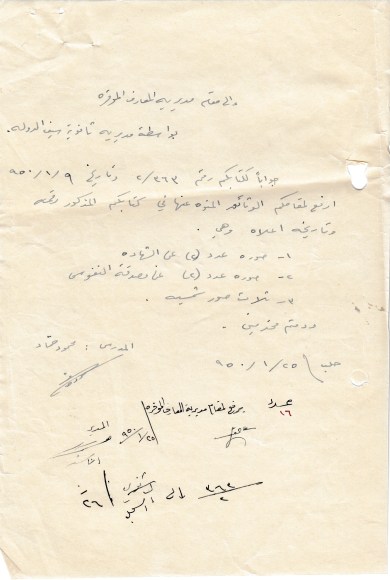 الى مقام مديرية المعارف الموقرة
بواسطة مديرية ثانوية سيف الدولة.
جواباً لكتابكم رقم ٢/٣٦٣ وتاريخ ٩/١/٩٥٠
ارفع لمقامكم الوثائق المنوه عنها في كتابكم المذكور رقمه
وتاريخه اعلاه وهي
١- صورة عدد (٢) عن الشهادة
٢- صورة عدد (٢) عن مصدقة النفوس
٣- ثلاث صور شمسية.
ودمتم محترمين.
المدرس: محمود
حلب ٢٥/١/٩٥٠
عدد
١٦
يرفع لمقام مديرية المعارف الموقرة
المدير
٢٥/١/٩٥٠
٣٦٣/٢ الى
٢٦